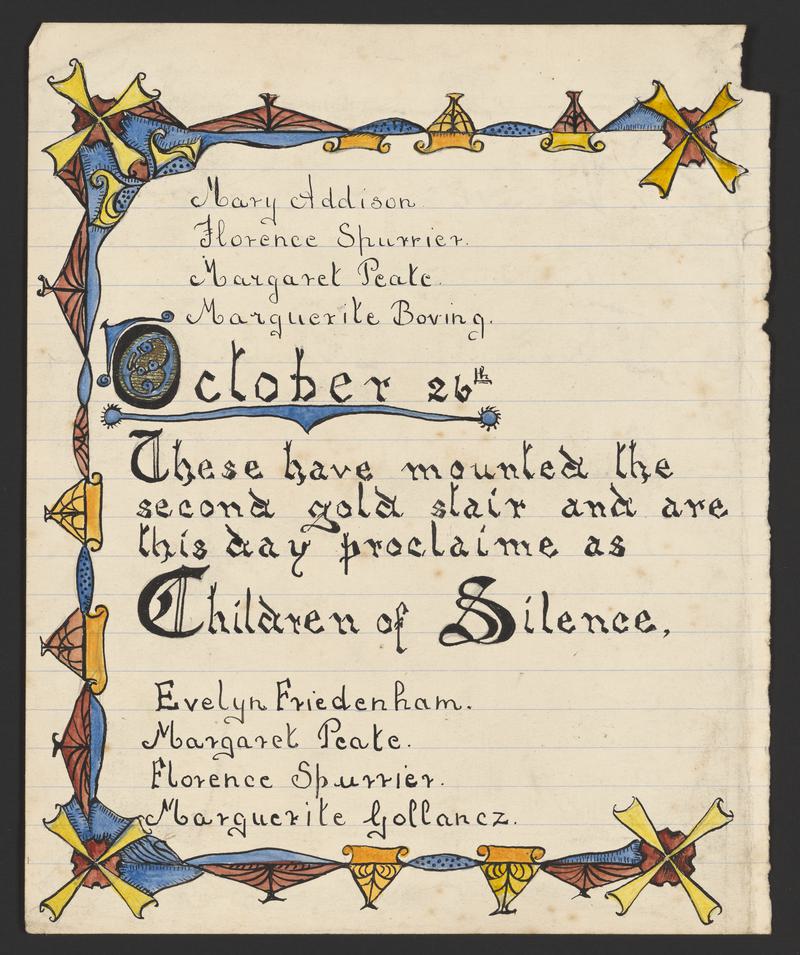 Mary Addison
Florence Spurrier.
Margaret Peate.
Marguerite Boving.
October 26th
These have mounted the
second gold stair and are
this day proclaime as
Children of Silence,
Evelyn Friedenham.
Margaret Peate.
Florence Spurrier.
Marguerite Gollancz.